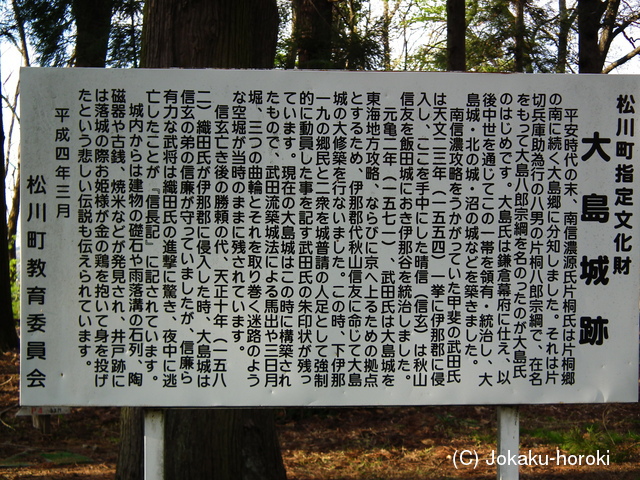 松川町指定文化財
大島城跡
平安時代の末、南信濃源氏片桐氏は片桐郷
の南に続く大島郷に分知しました。それは片
切兵庫助為行の八男の片桐八郎宗綱で、在名
をもって大島八郎宗綱を名のったのが大島氏
のはじめです。大島氏は鎌倉幕府に仕え、以
後中世を通じてこの一帯を領有・統治し、大
島城・北の城・沼の城などを築きました。
南信濃攻略をうかがっていた甲斐の武田氏
は天文二三年（一五五四）一挙に伊那郡に侵
入し、ここを手中にした晴信（信玄）は秋山
信友を飯田城におき伊那谷を統治しました。
元亀二年（一五七一）、武田氏は大島城を
東海地方攻略、ならびに京へ上るための拠点
とするため、伊那郡代秋山信友に命じて大島
城の大修築を行ないました。この時、下伊那
一九の郷民と二衆を城普請の人足として強制
的に動員した事を記す武田氏の朱印状が残っ
ています。現在の大島城はこの時に構築され
たもので、武田流築城法による馬出や三日月
堀、三つの曲輪とそれを取り巻く迷路のよう
な空堀が当時のままに残されています。
信玄亡き後の勝頼の代、天正十年（一五八
二）織田氏が伊那郡に侵入した時、大島城は
信玄の弟の信廉が守っていましたが、信廉ら
有力な武将は織田氏の進撃に驚き、夜中に逃
亡したことが『信長記』に記されています。
城内からは建物の礎石や雨落溝の石列、陶
磁器や古銭、焼米などが発見され、井戸跡に
は落城の際お姫様が金の鶏を抱いて身を投げ
たという悲しい伝説も伝えられています。
平成四年三月
松川町教育委員会
(C) Jokaku-horoki